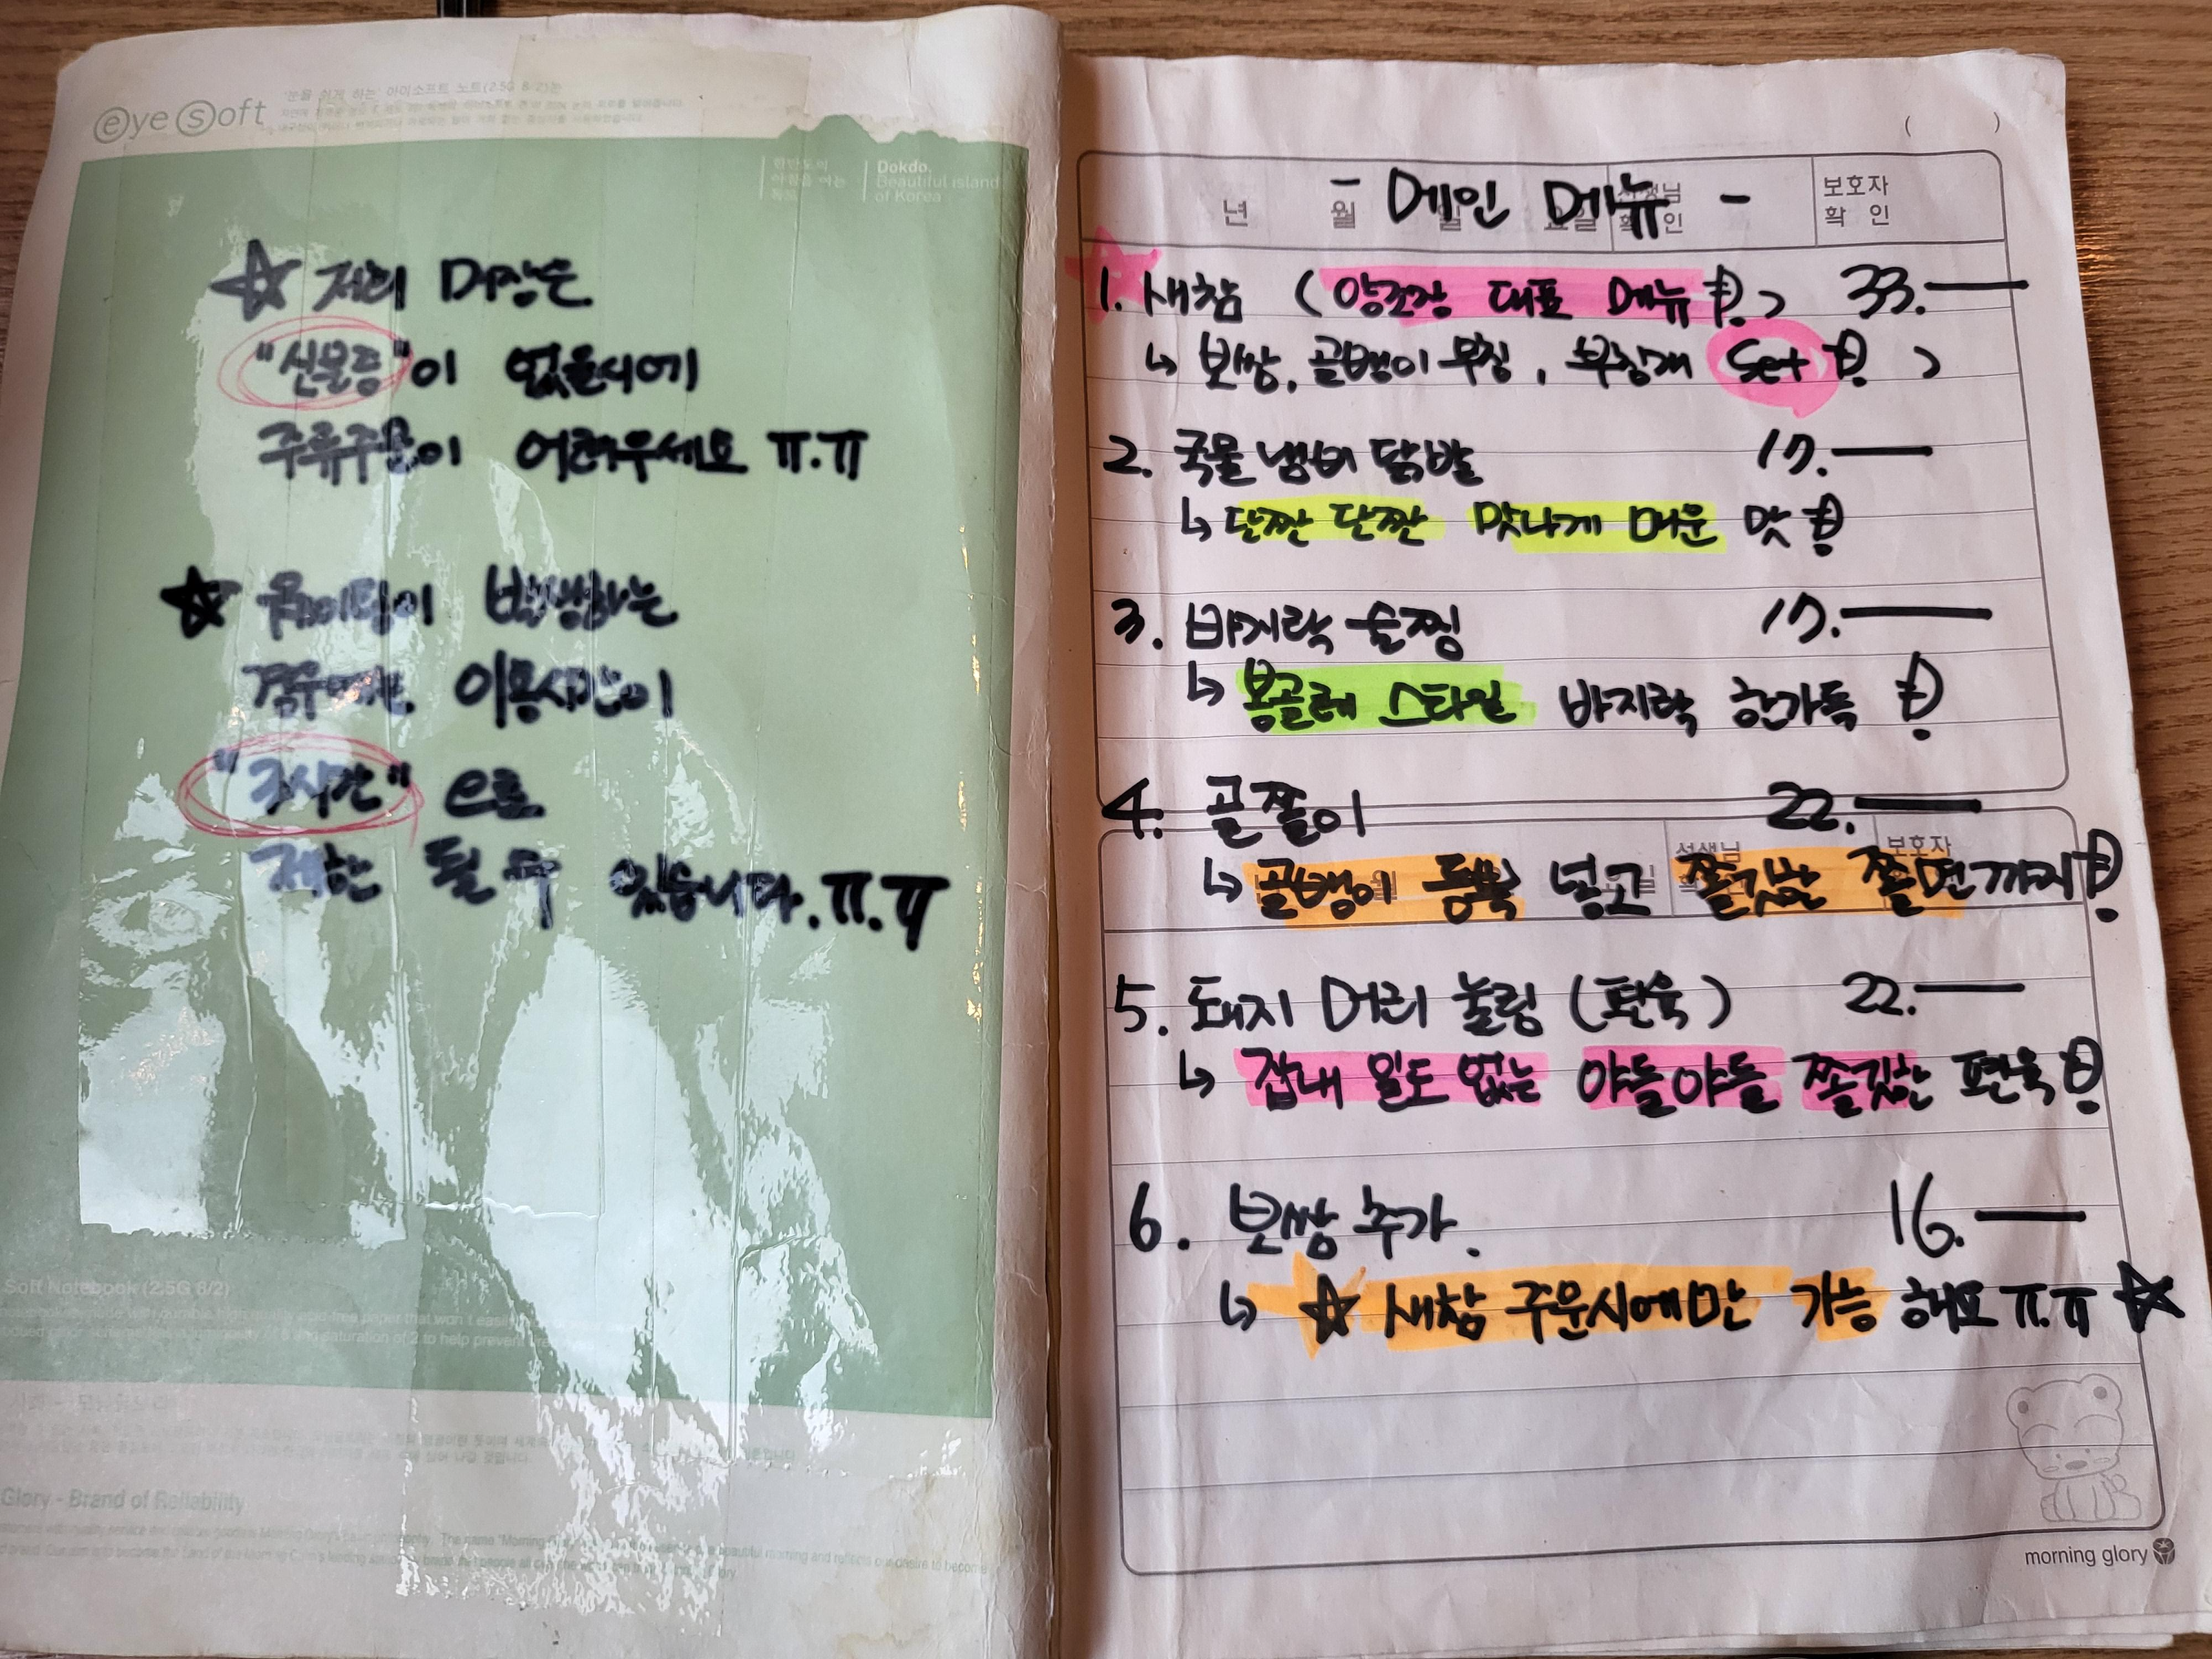 eye soft
'눈을 쉬게 하는' 아이소프트 노트(2.5G 8/2)는
한반도의
아침을 여는
독도
Dokdo,
Beautiful island
of Korea
☆ 저희 매장은
"신분증"이 없을시에
주류주문이 어려우세요 ㅠ.ㅠ
☆ 웨이팅이 발생하는
경우에는 이용시간이
"2시간" 으로
제한 될 수 있습니다.ㅠ.ㅠ
Soft Notebook (2.5G 8/2)
Glory - Brand of Reliability
( )
년 월 일 요일 선생님 확인 보호자 확인
- 메인 메뉴 -
1. 새참 (양조장 대표 메뉴!) 33.—
↳ 보쌈, 골뱅이무침, 부침개 Set! )
2. 국물 냄비 닭발 17.—
↳ 단짠 단짠 맛나게 매운 맛!
3. 바지락 술찜 17.—
↳ 봉골레 스타일 바지락 한가득!
4. 골쫄이 22.—
선생님 보호자
↳ 골뱅이 듬뿍 넣고 쫄깃한 쫄면까지!
5. 돼지 머리 눌림 (편육) 22.—
↳ 잡내 일도 없는 야들야들 쫄깃한 편육!
6. 보쌈 추가. 16.—
↳ ☆ 새참 주문시에만 가능 해요 ㅠ.ㅠ ☆
morning glory